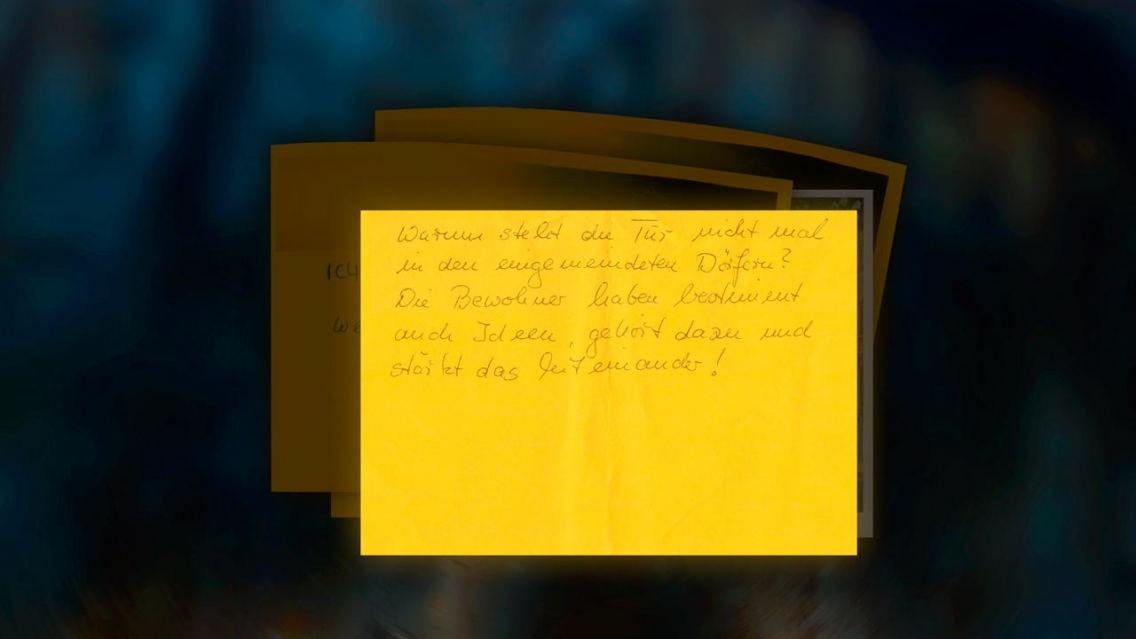 Warum steht die Tür nicht mal
in den eingemeindeten Dörfern?
Die Bewohner haben bestimmt
auch Ideen, gehört dazu und
stärkt das Miteinander!
ICH
We